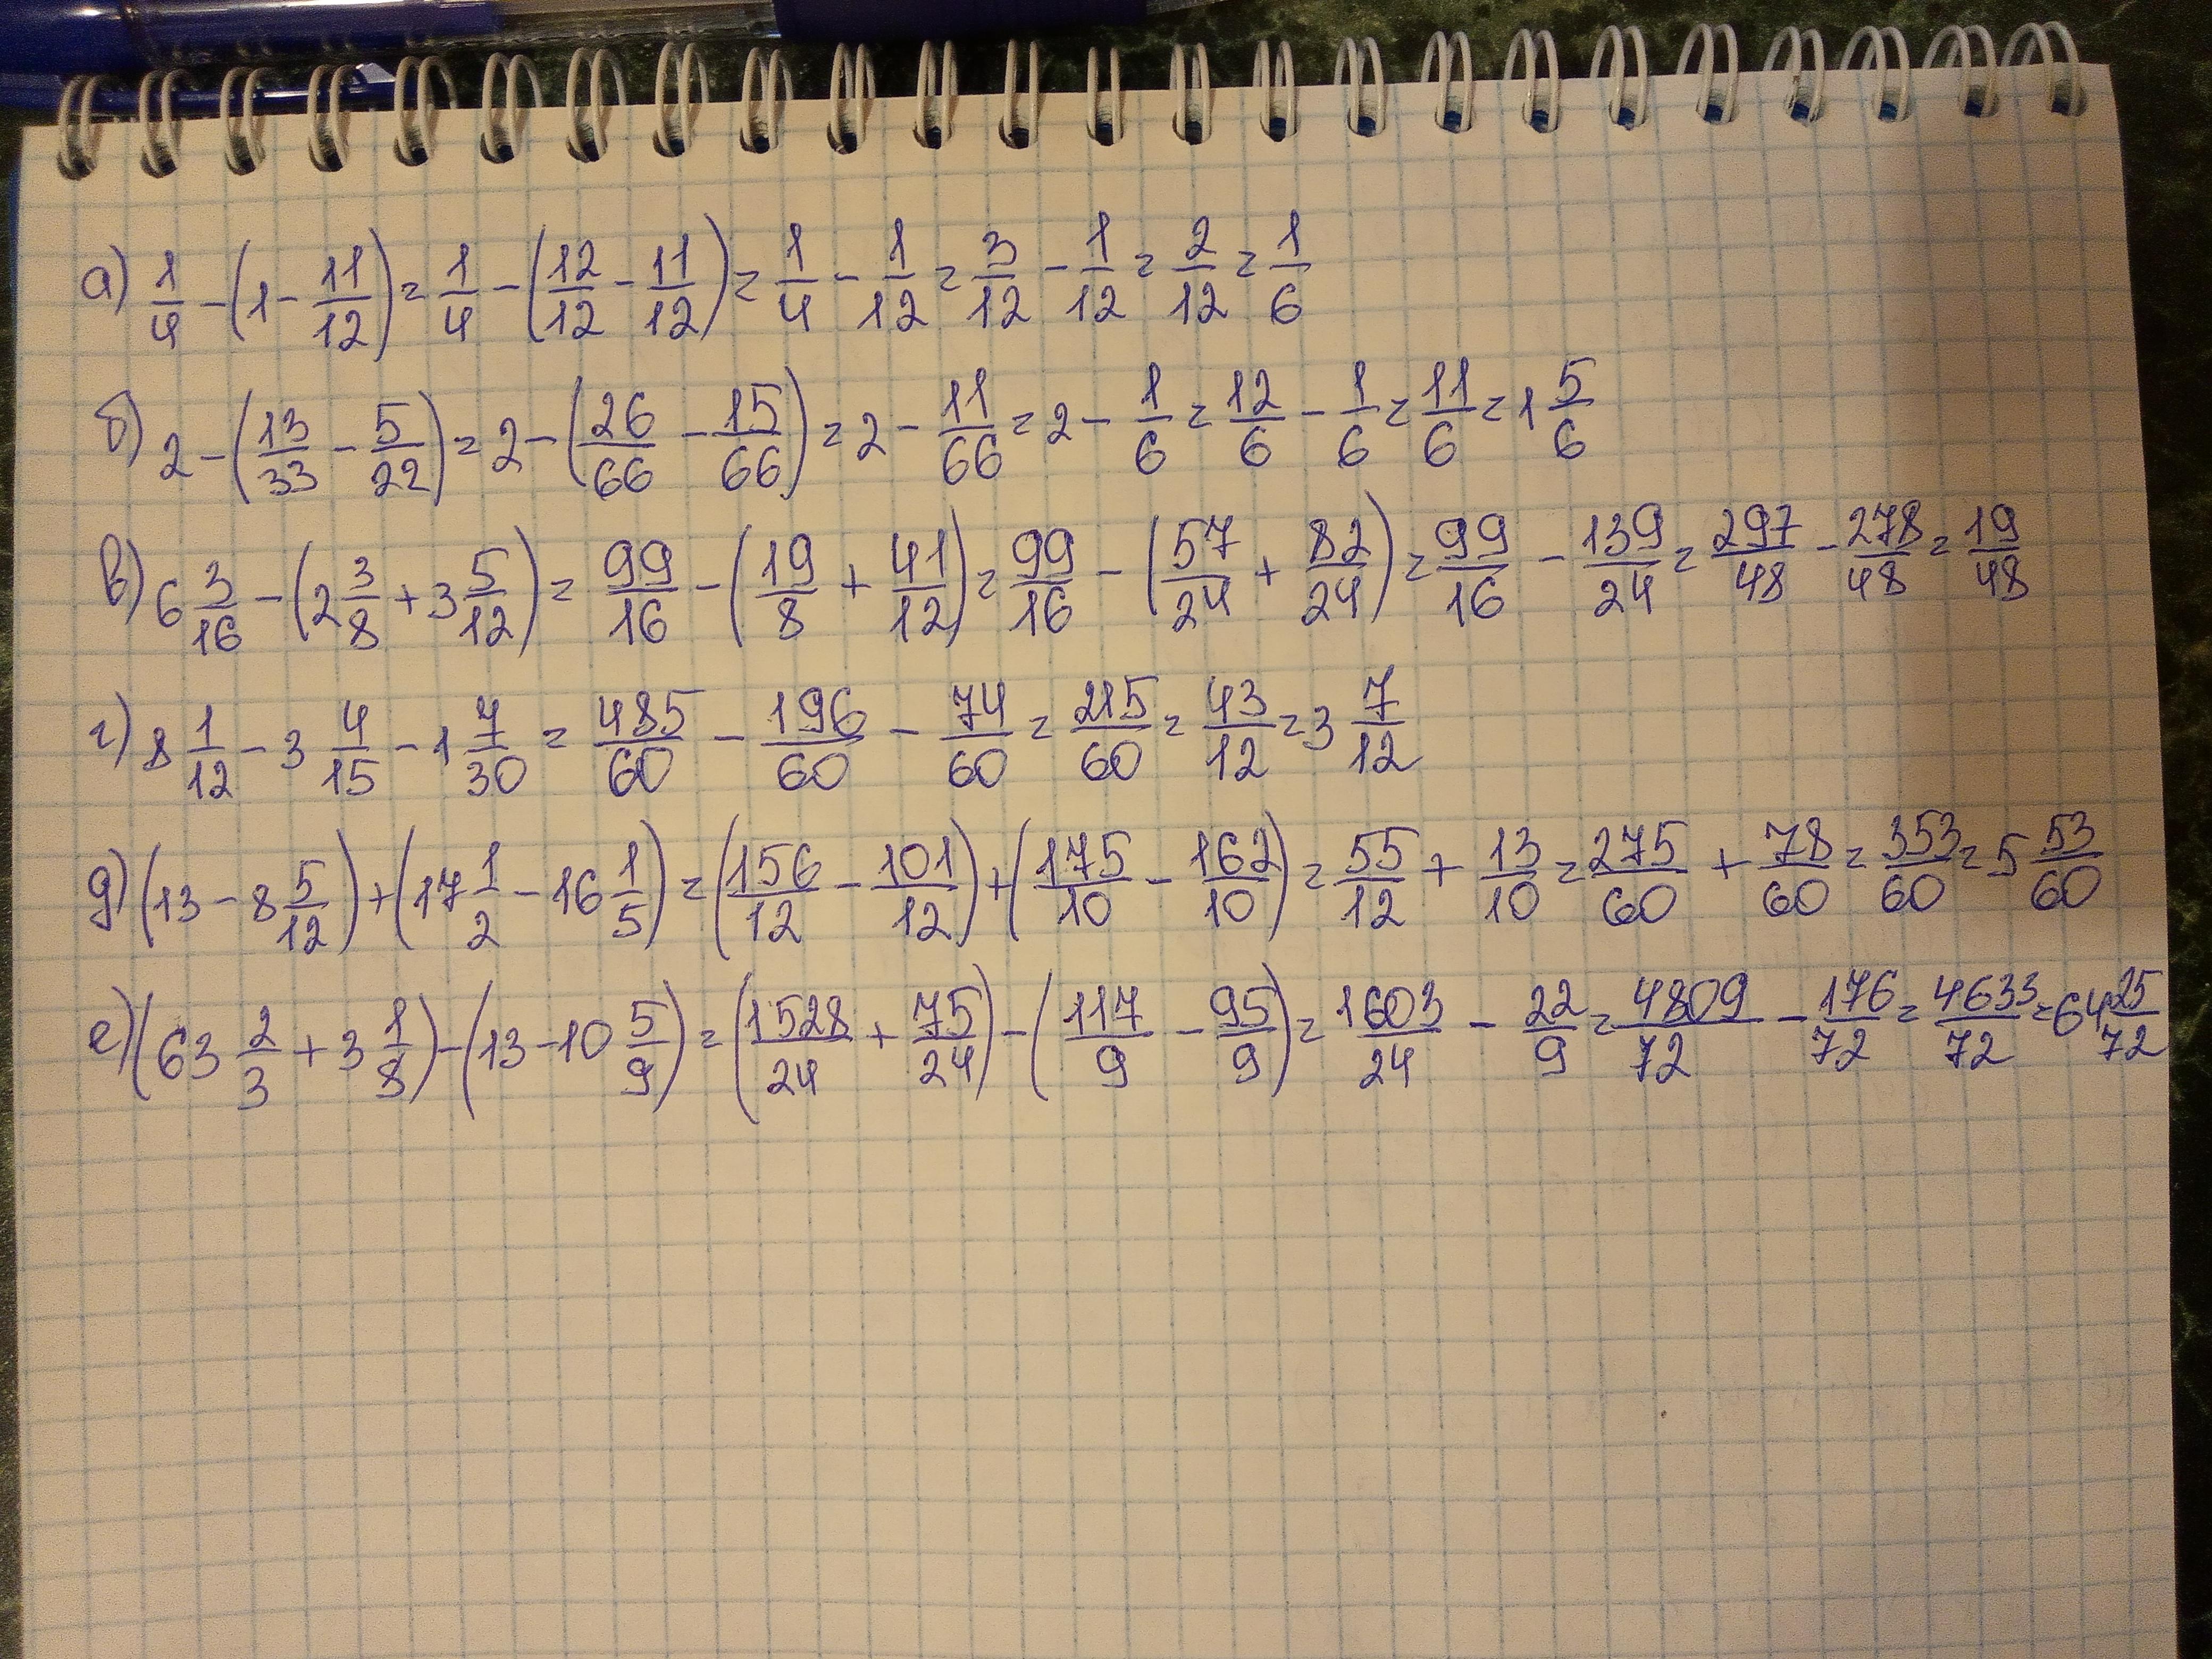 а) 1/4 - (1 - 11/12) = 1/4 - (12/12 - 11/12) = 1/4 - 1/12 = 3/12 - 1/12 = 2/12 = 1/6
б) 2 - (13/33 - 5/22) = 2 - (26/66 - 15/66) = 2 - 11/66 = 2 - 1/6 = 12/6 - 1/6 = 11/6 = 1 5/6
в) 6 3/16 - (2 3/8 + 3 5/12) = 99/16 - (19/8 + 41/12) = 99/16 - (57/24 + 82/24) = 99/16 - 139/24 = 297/48 - 278/48 = 19/48
г) 8 1/12 - 3 4/15 - 1 7/30 = 485/60 - 196/60 - 74/60 = 215/60 = 43/12 = 3 7/12
д) (13 - 8 5/12) + (17 1/2 - 16 1/5) = (156/12 - 101/12) + (175/10 - 162/10) = 55/12 + 13/10 = 275/60 + 78/60 = 353/60 = 5 53/60
е) (63 2/3 + 3 1/8) - (13 - 10 5/9) = (1528/24 + 75/24) - (117/9 - 95/9) = 1603/24 - 22/9 = 4809/72 - 176/72 = 4633/72 = 64 25/72